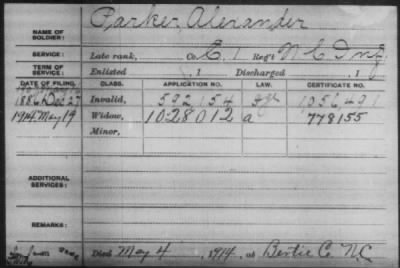 Parker, Alexander
NAME OF SOLDIER:
SERVICE: Late rank, Co. E, 1 Reg't N C Inf.
TERM OF SERVICE: Enlisted , 1 Discharged , 1
DATE OF FILING. CLASS. APPLICATION NO. LAW. CERTIFICATE NO.
1886 Dec 27 Invalid, 592,154 1056,491
1914 May 19 Widow, 1028012 a 778155
Minor,
ADDITIONAL SERVICES:
REMARKS:
Died May 4, 1914, at Bertie Co NC